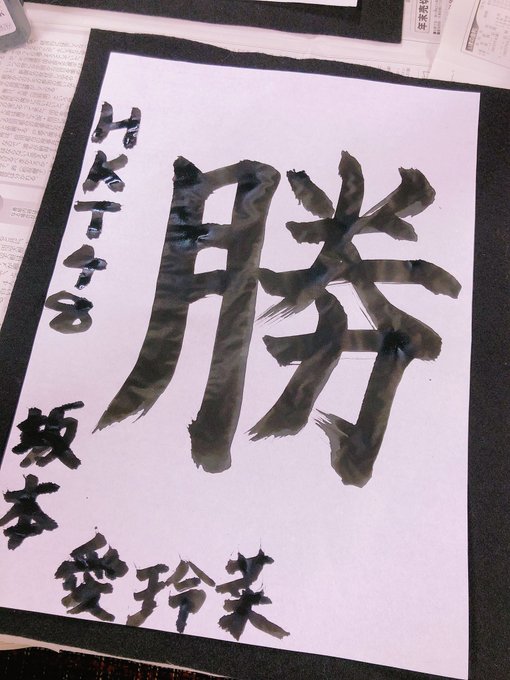 勝
HKT48
坂本
愛玲菜